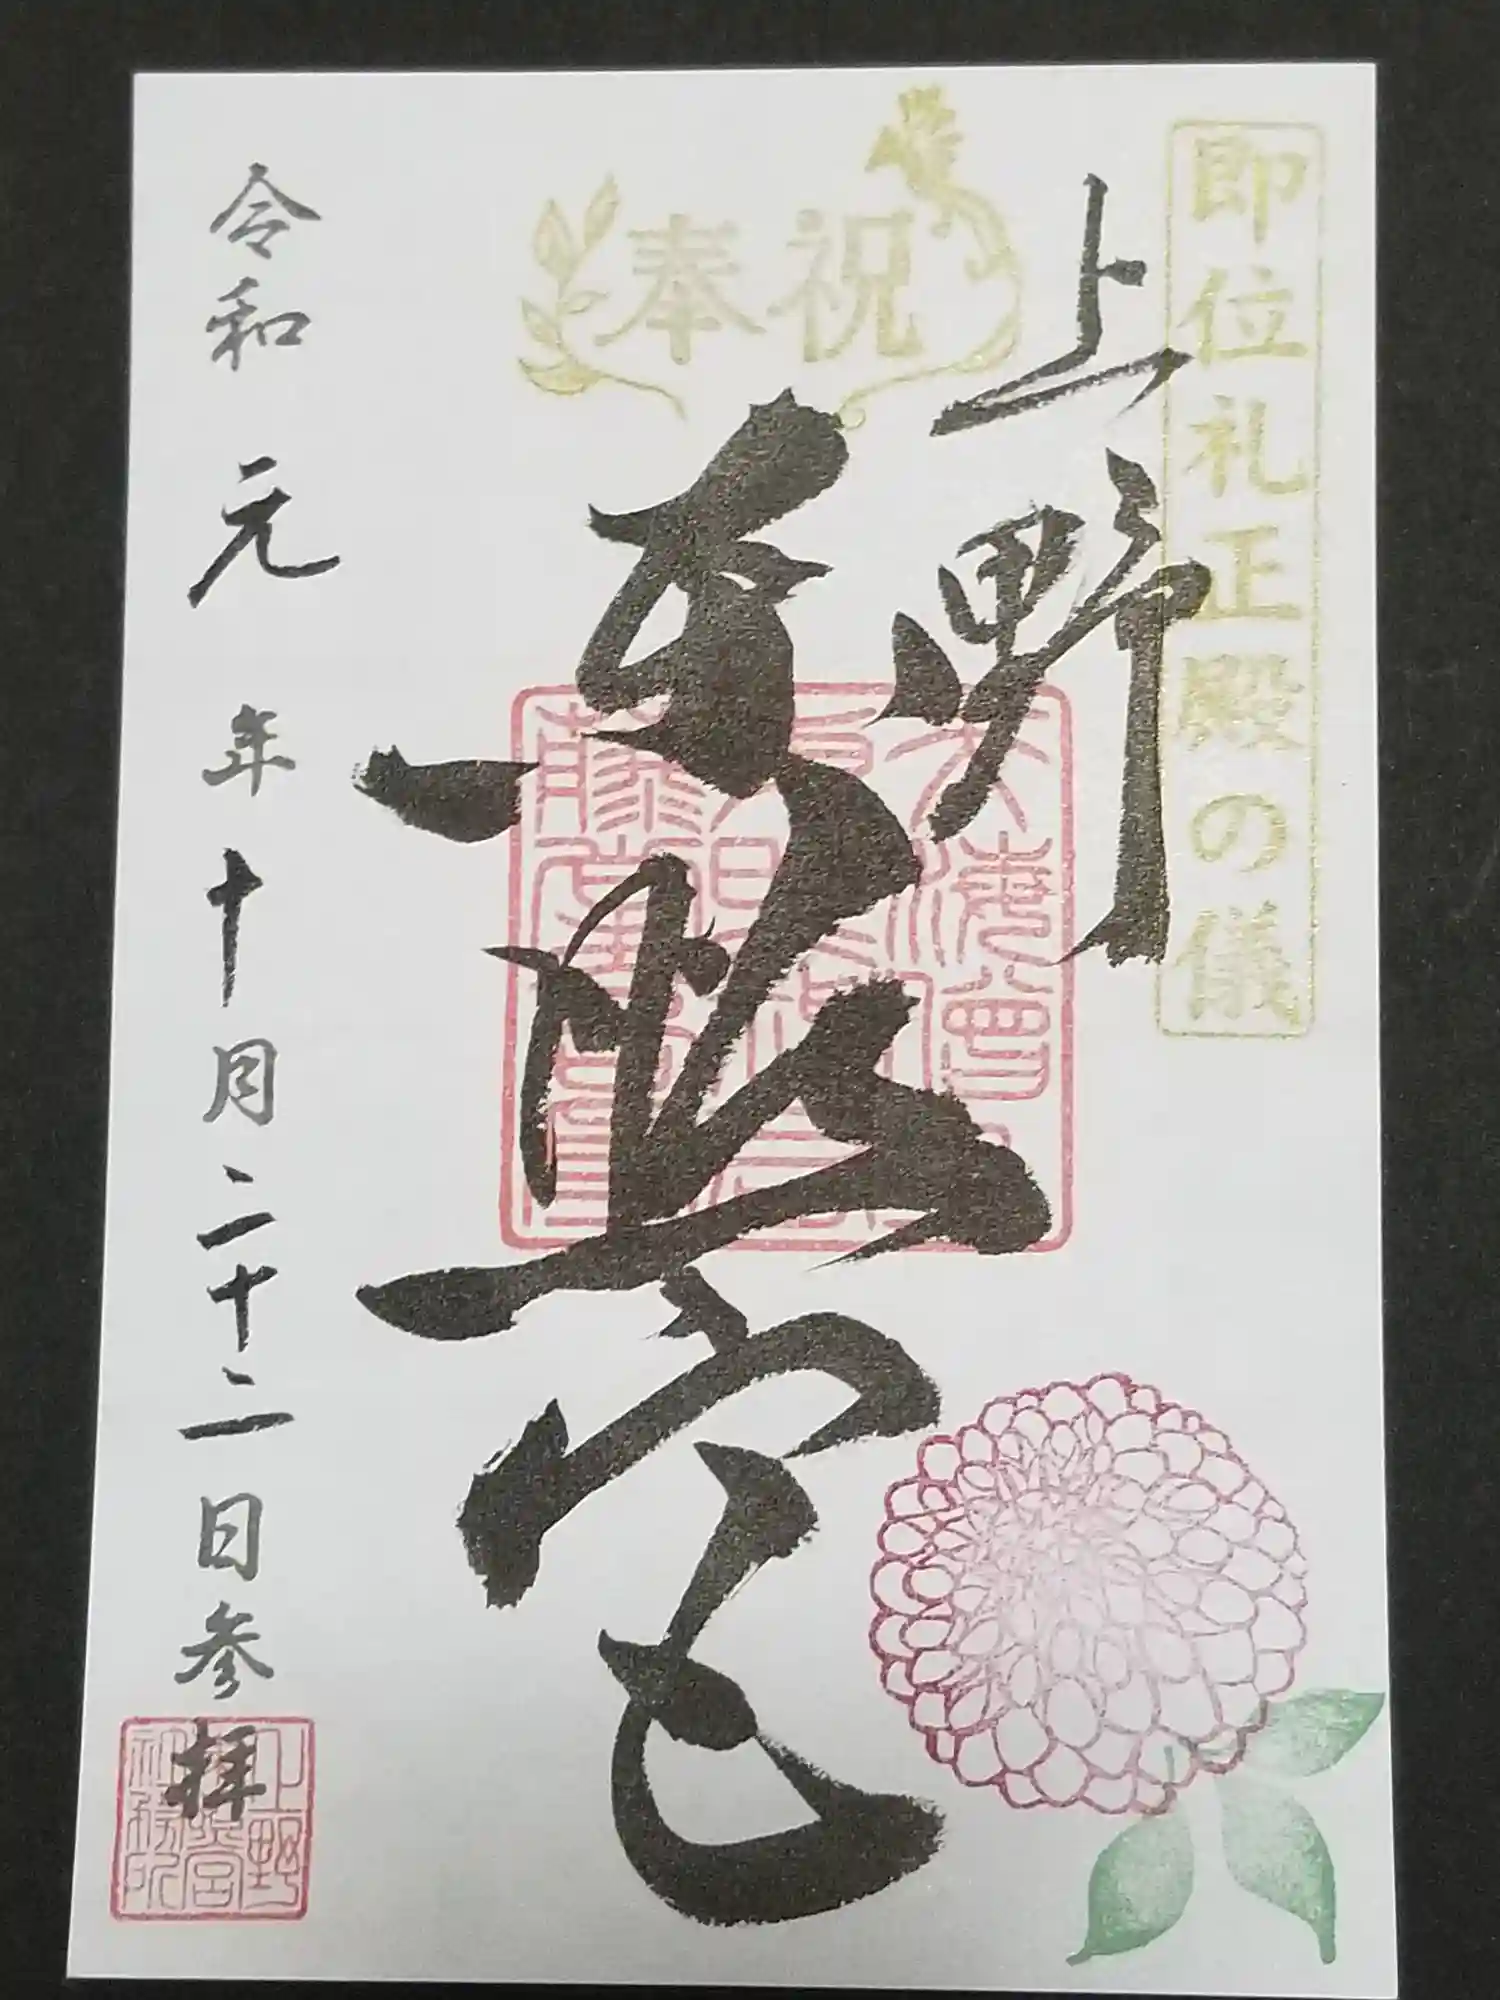 即位礼正殿の儀
奉祝
上野
東照宮
令和元年十月二十二日参拝
上野
東照宮
社務所